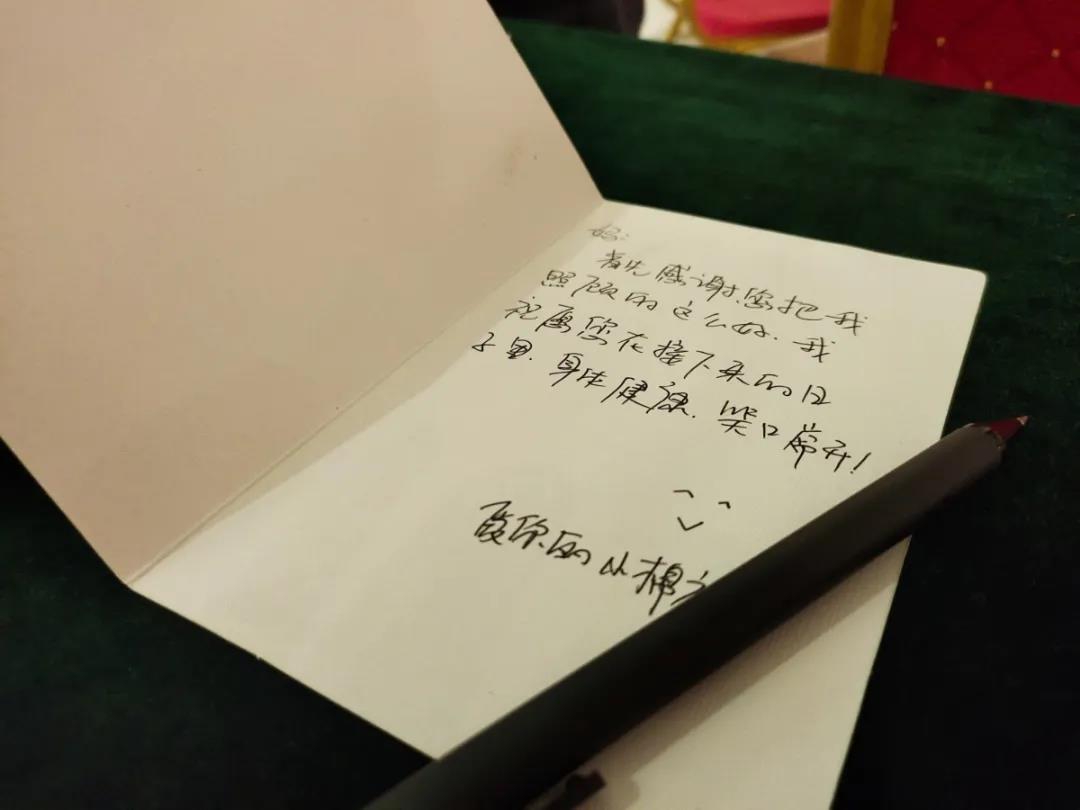 妈：
首先感谢您把我
照顾的这么好.我
祝愿您在接下来的日
子里.身体健康.笑口常开!
爱你的小棉